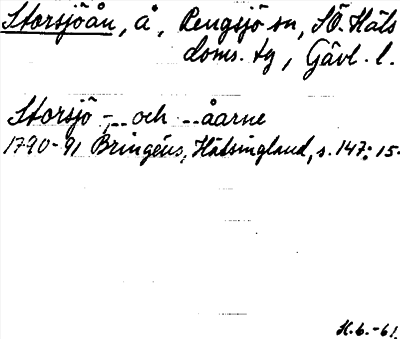 Storsjöån, å, Rengsjö sn, SÖ. Häls
doms. tg, Gävl. l.
Storsjö -,-- och --åarne
1790-91 Bringéus, Hälsingland, s. 147: 15.
H.b.-61.